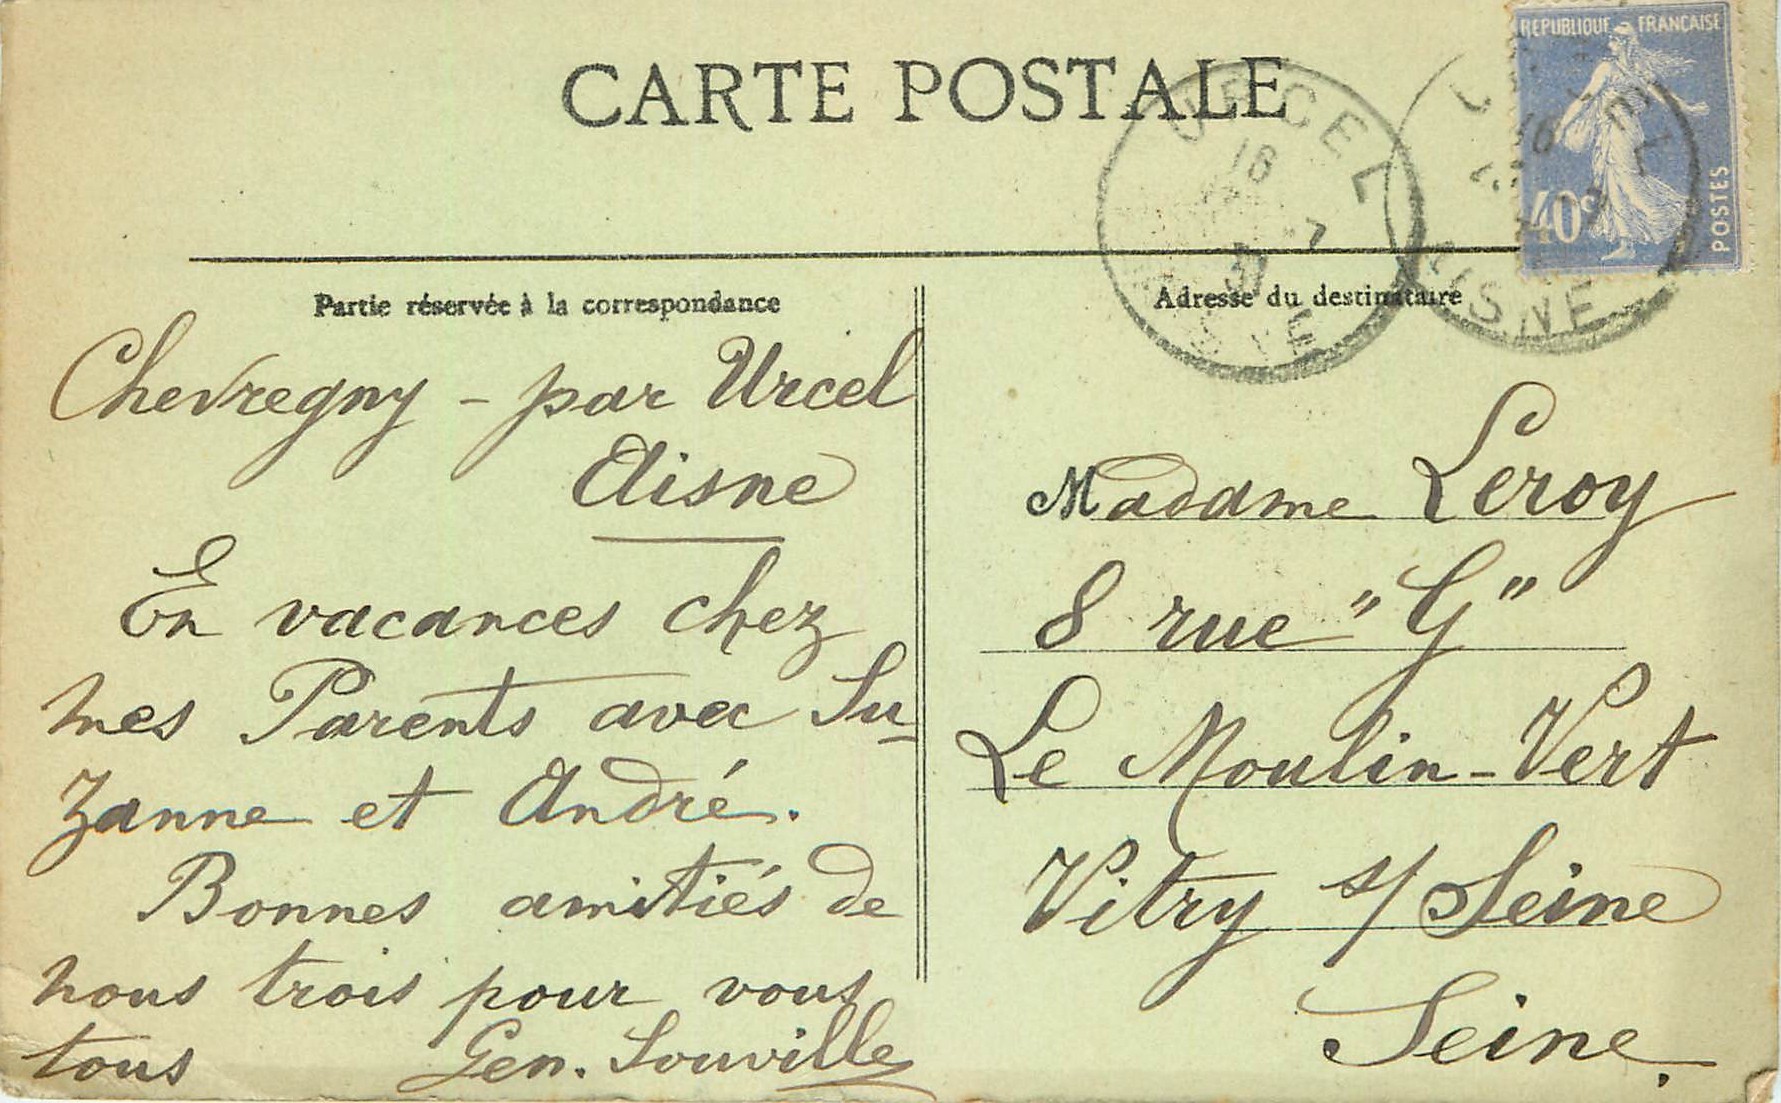 CARTE POSTALE
REPUBLIQUE FRANÇAISE
40c
POSTES
URCEL
16
-7
31
AISNE
Partie réservée à la correspondance
Chevregny - par Urcel
Aisne
En vacances chez
mes Parents avec Su-
zanne et André.
Bonnes amitiés de
nous trois pour vous
tous Gen. Souville
Adresse du destinataire
Madame Leroy
8 rue "G"
Le Moulin-Vert
Vitry s/Seine
Seine.